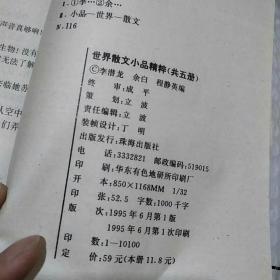 Ⅰ.①李…②余…
Ⅱ.小品—世界—散文
N.116
声音真够响
生物！没有
无法了解
来临地苏
人空中
们弄
世界散文小品精粹(共五册)
©李潜龙 余白 程静英编
终 审:成 平
策 划:立 波
责任编辑:立 波
装帧设计:丁 明
出版发行:珠海出版社
电 话:3332821 邮政编码:519015
印 刷:华东有色地研所印刷厂
开 本:850×1168MM 1/32
印 张:52.5 字数:1000千字
版 次:1995年6月第1版
1995年6月第1次印刷
印 数:1—10100
定 价:59元(本册11.8元)